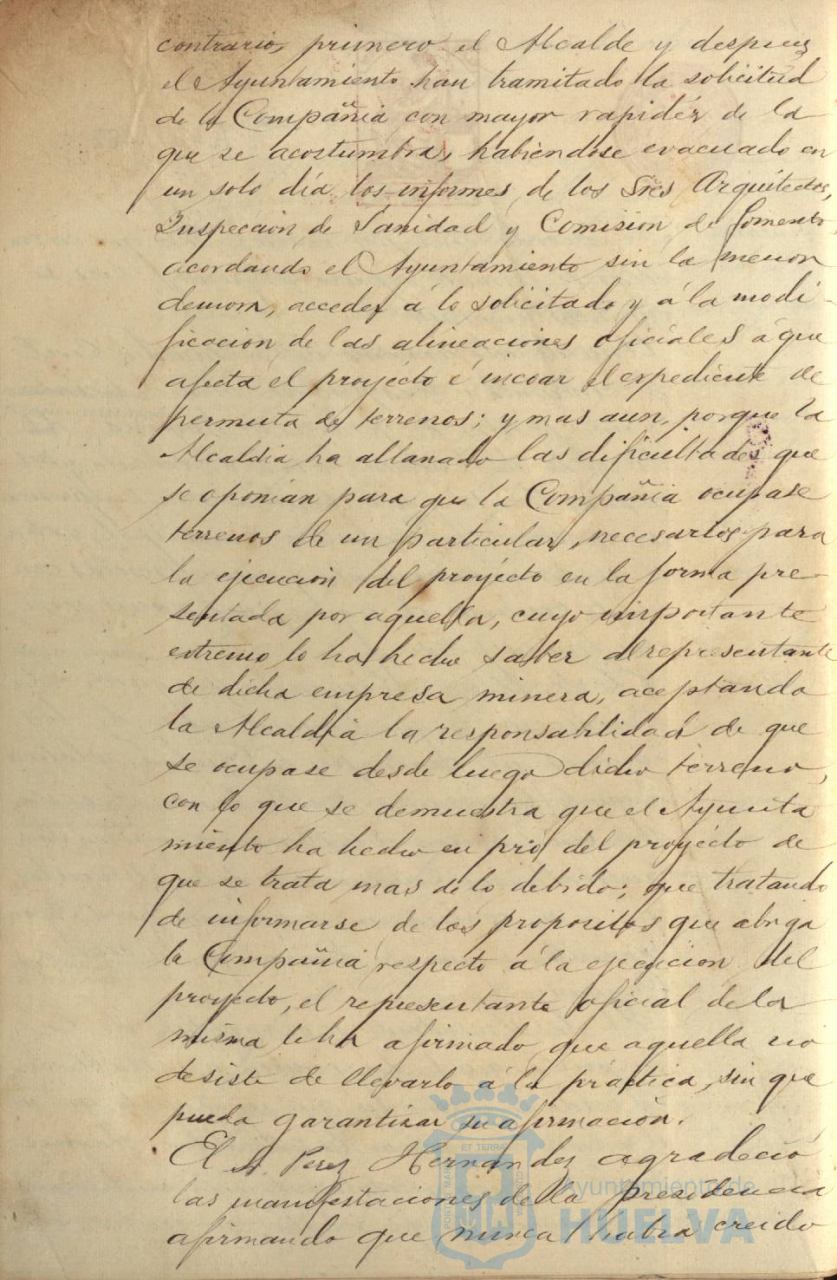 contrario, primero el Alcalde y despues
el Ayuntamiento han tramitado la solicitud
de la Compañia con mayor rapidéz de la
que se acostumbra, habiendose evacuado en
un solo día los informes de los Sres Arquitectos,
Inspección de Sanidad y Comision de fomento,
acordando el Ayuntamiento sin la menor
demora, acceder á lo solicitado y á la modi-
ficacion de las alineaciones oficiales á que
afecta el proyécto é incoar el expediente de
permuta de terrenos; y mas aun, porque la
Alcaldia ha allanado las dificultades que
se oponian para que la Compañia ocupase
terrenos de un particular, necesarios para
la ejecución del proyécto en la forma pre-
sentada por aquella, cuyo importante
extremo lo ha hecho saber al representante
de dicha empresa minera, aceptando
la Alcaldia la responsabilidad de que
se ocupase desde luego dicho terreno,
con lo que se demuestra que el Ayunta
miento ha hecho en pró del proyécto de
que se trata mas de lo debido; que tratando
de informarse de los propositos que abriga
la Compañia respecto á la ejecucion del
proyecto, el representante oficial de la
misma le ha afirmado que aquella no
desiste de llevarlo á la práctica, sin que
pueda garantizar su afirmación.
El Sr. Perez Hernandez agradeció
las manifestaciones de la presidencia
afirmando que nunca habia creido
Ayuntamiento de
HUELVA